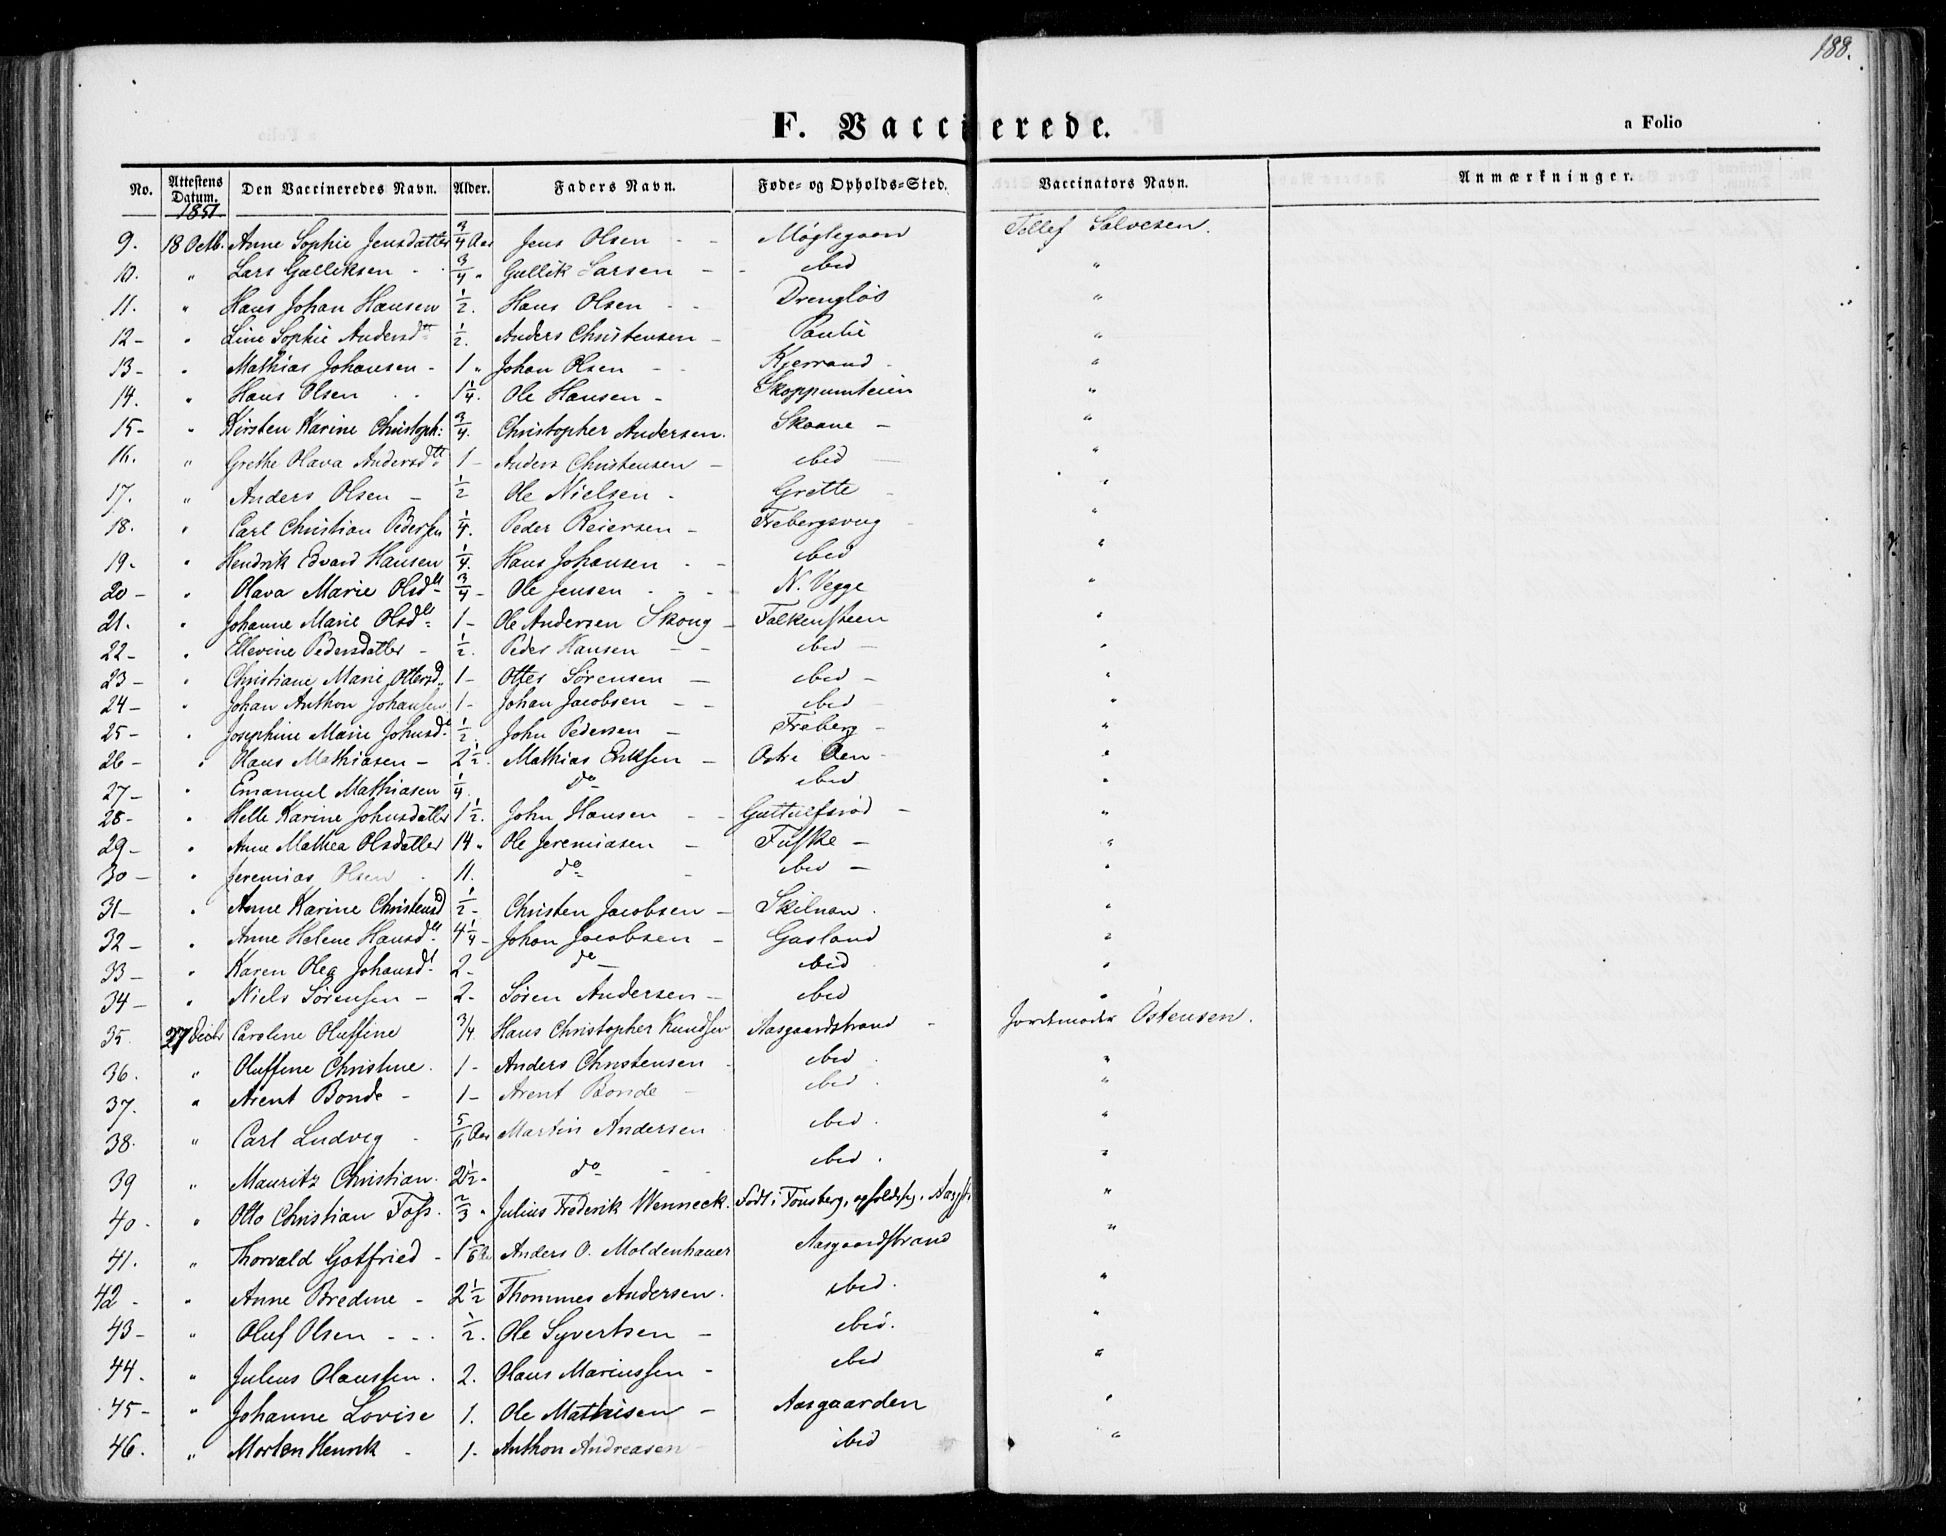 188.
F. Vaccinerede.
a Folio
No. Attestens Datum. Den Vaccineredes Navn. Alder. Faders Navn. Føde- og Opholds-Sted. Vaccinators Navn. Anmærkninger.
1851
9. 18 Octb. Anne Sophie Jensdatter 3/4 Aar Jens Olsen - - Møglegaon Tellef Salvesen.
10. " Lars Gulliksen - 3/4 " Gullik Larsen - - ibid "
11. " Hans Johan Hansen 1/2. Hans Olsen - - Drengløs "
12- " Line Sophie Andersdtt 1/2. Anders Christensen - Paulie "
13- " Mathias Johansen - 1 " Johan Olsen - - Kjerrand - "
14. " Hans Olsen . . 1 1/4. Ole Hansen - Skoppumteien "
15- " Kirsten Karine Christoph: 3/4. Christopher Andersen. Skaane - "
16. " Grethe Olava Andersdtt 1 - Anders Christensen - ibid - "
17. " Anders Olsen - 1/2 Ole Nielsen - Grette - "
18. " Carl Christian Pedersen 1/4. Peder Reiersen - Frebergsvug - "
19- " Hendrik Edvard Hansen 1/4. Hans Johansen - - ibid "
20- " Olava Marie Olsdtt 3/4 - Ole Jensen - - - N. Vegge "
21. " Johanne Marie Olsdtt 1 - Ole Andersen Skoug - Falkensteen "
22- " Ellevine Pedersdatter - 1/2. Peder Hansen - - ibid - "
23- " Christiane Marie Ottersd. 1 - Otter Sørensen - ibid - "
24- " Johan Anthon Johansen 1 - Johan Jacobsen - - ibid - "
25- " Josephine Marie Johnsd. 1/2. John Pedersen - Freberg - "
26- " Hans Mathiasen - 2 1/2. Mathias Eriksen - Østre Øen - "
27- " Emanuel Mathiasen 1/4. do ibid "
28- " Helle Karine Johnsdatter 1 1/2. John Hansen - - Guttulfsrød - "
29- " Anne Mathea Olsdatter 14 " Ole Jeremiasen - Fuske - "
30- " Jeremias Olsen - 11. do - ibid - "
31- " Anne Karine Christensd 1/2 - Christen Jacobsen - Skilnan . "
32- " Anne Helene Hansdtt 4 1/4 - Johan Jacobsen - Gasland "
33- " Karen Olea Johansdt 2 - do ibid . "
34- " Niels Sørensen - 2 - Søren Andersen - ibid "
35. 27 Decbr Caroline Oluffine 3/4. Hans Christopher Knudsen Aasgaardstrand - Jordemoder Østensen.
36. " Oluffine Christine. 1 - Anders Christensen - ibid . "
37. " Arent Bonde - 1 - Arent Bonde - ibid . "
38. " Carl Ludvig - 5/6 Aar Martin Andersen ibid. "
39 " Mauritz Christian. 2 1/2 - do - - ibid . "
40 - " Otto Christian Foss. 2/3 " Julius Frederik Wenneck. Født i Tønsberg, opholdst. i Aasgst "
41. " Thorvald Gotfried - 1 1/6 Aar Anders O. Moldenhauer Aasgaardstrand "
42 - " Anne Bredine - 2 1/2 Thommes Andersen. ibid. "
43- " Oluf Olsen - - . 1/2. Ole Syvertsen - ibid. "
44. " Julius Hanssen . 2. Hans Mariussen - ibid "
45- " Johanne Lovise 1. Ole Mathisen - Aasgaarden "
46. " Morten Henrik - 1 - Anthon Andreasen - ibid "